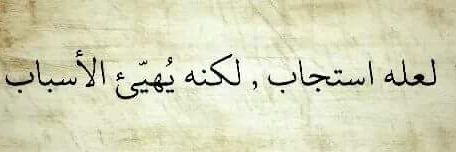 لعله استجاب , لكنه يُهيّئ الأسباب